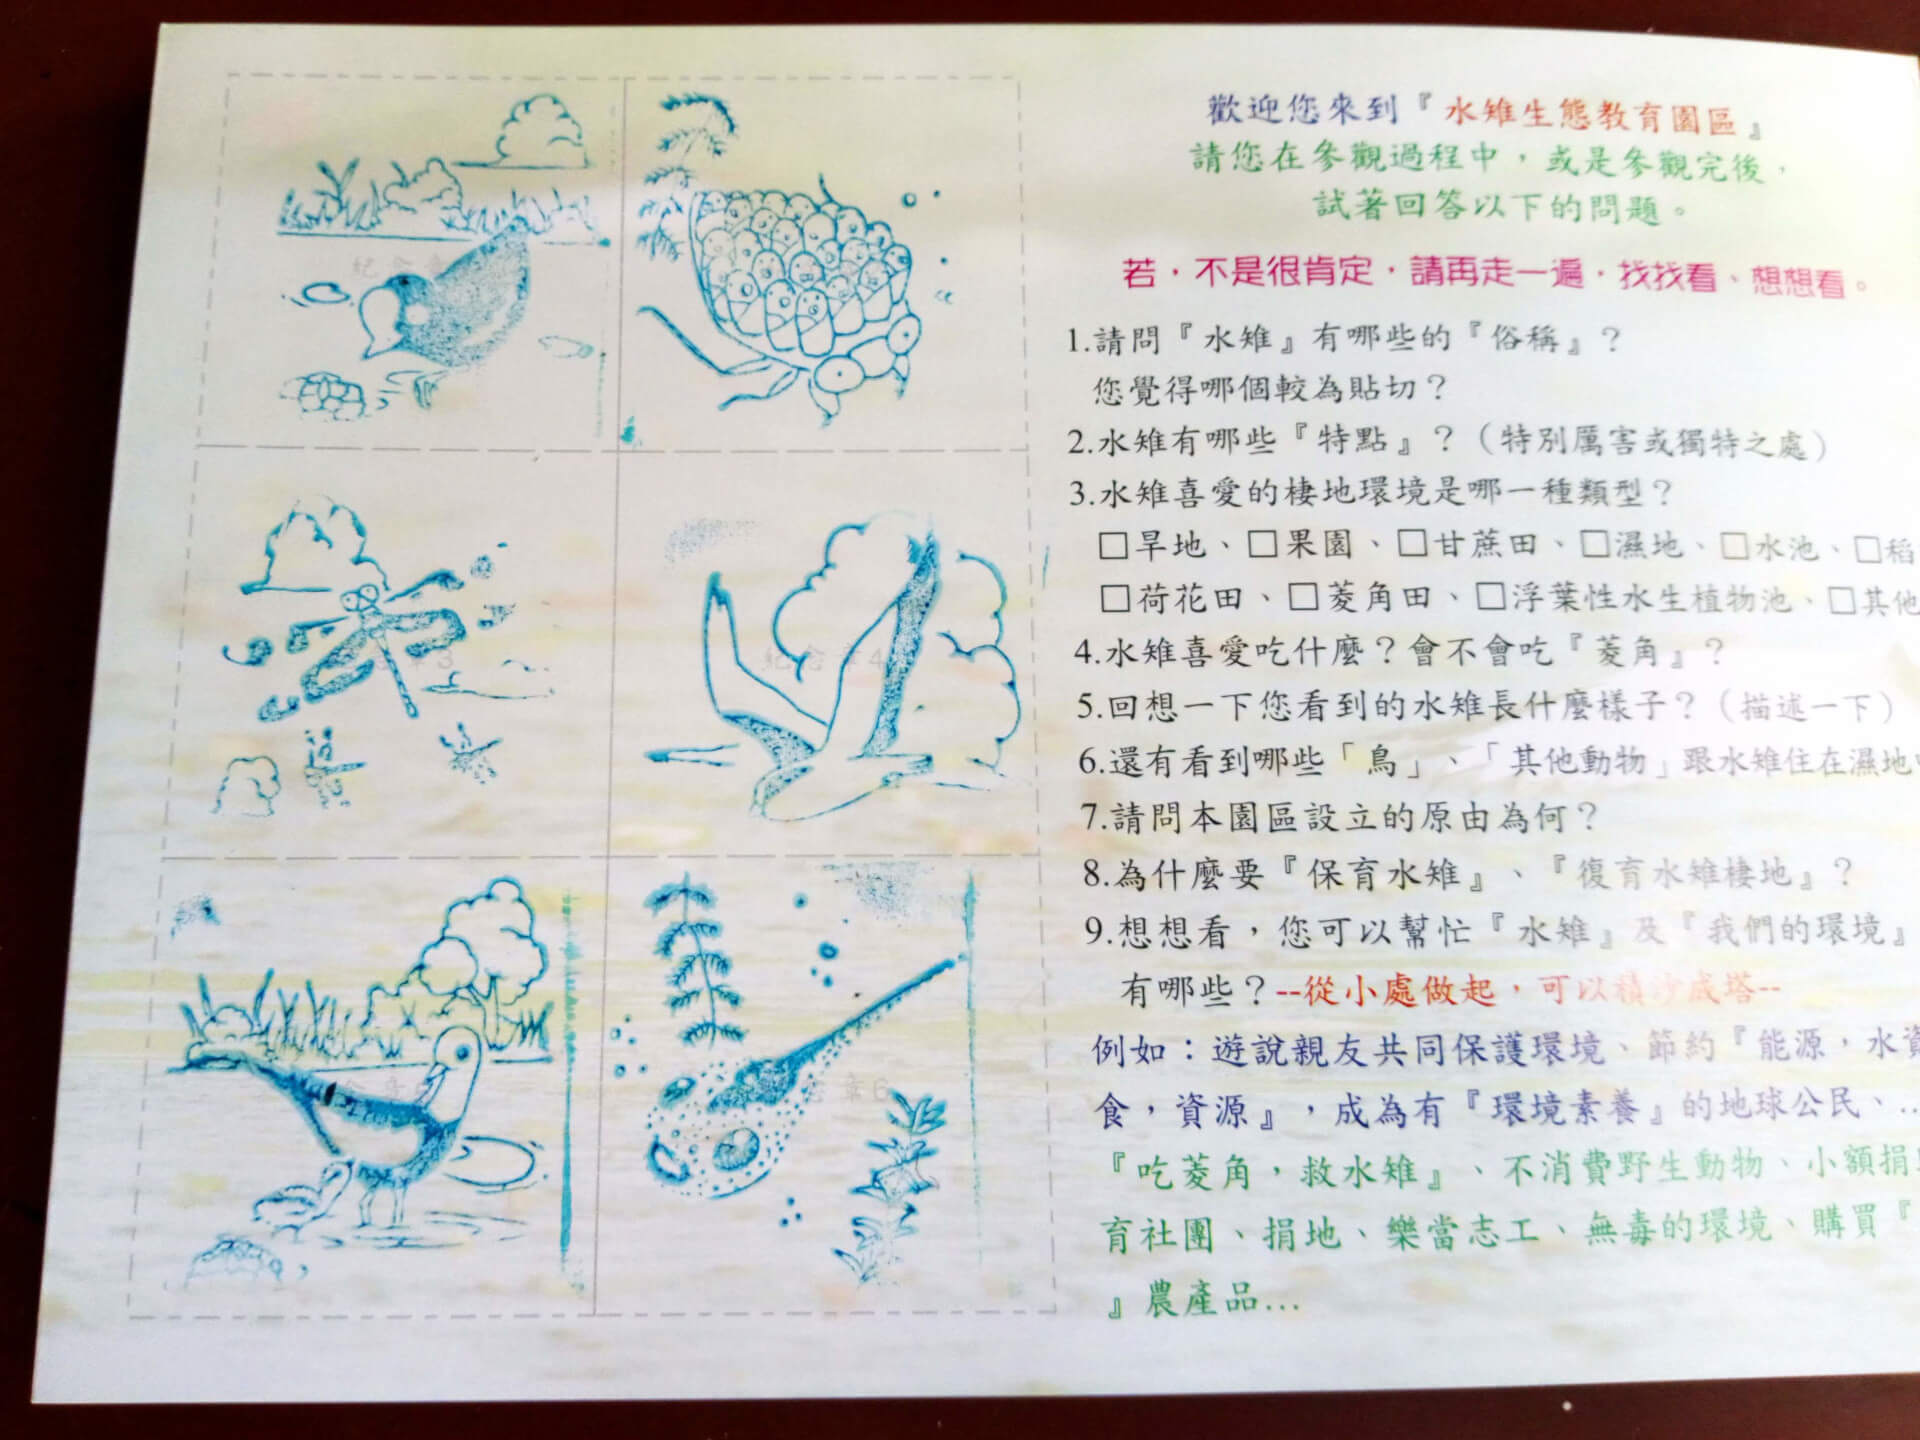 歡迎您來到『水雉生態教育園區』
請您在參觀過程中，或是參觀完後，
試著回答以下的問題。
若，不是很肯定，請再走一遍，找找看、想想看。
1.請問『水雉』有哪些的『俗稱』？
您覺得哪個較為貼切？
2.水雉有哪些『特點』？（特別厲害或獨特之處）
3.水雉喜愛的棲地環境是哪一種類型？
□旱地、□果園、□甘蔗田、□濕地、□水池、□稻
□荷花田、□菱角田、□浮葉性水生植物池、□其他
4.水雉喜愛吃什麼？會不會吃『菱角』？
5.回想一下您看到的水雉長什麼樣子？（描述一下）
6.還有看到哪些「鳥」、「其他動物」跟水雉住在濕地
7.請問本園區設立的原由為何？
8.為什麼要『保育水雉』、『復育水雉棲地』？
9.想想看，您可以幫忙『水雉』及『我們的環境』
有哪些？--從小處做起，可以積沙成塔--
例如：遊說親友共同保護環境、節約『能源，水資
食，資源』，成為有『環境素養』的地球公民、...
『吃菱角，救水雉』、不消費野生動物、小額捐
育社團、捐地、樂當志工、無毒的環境、購買『
』農產品...
紀念章
章3
紀念章4
念章5
念章6